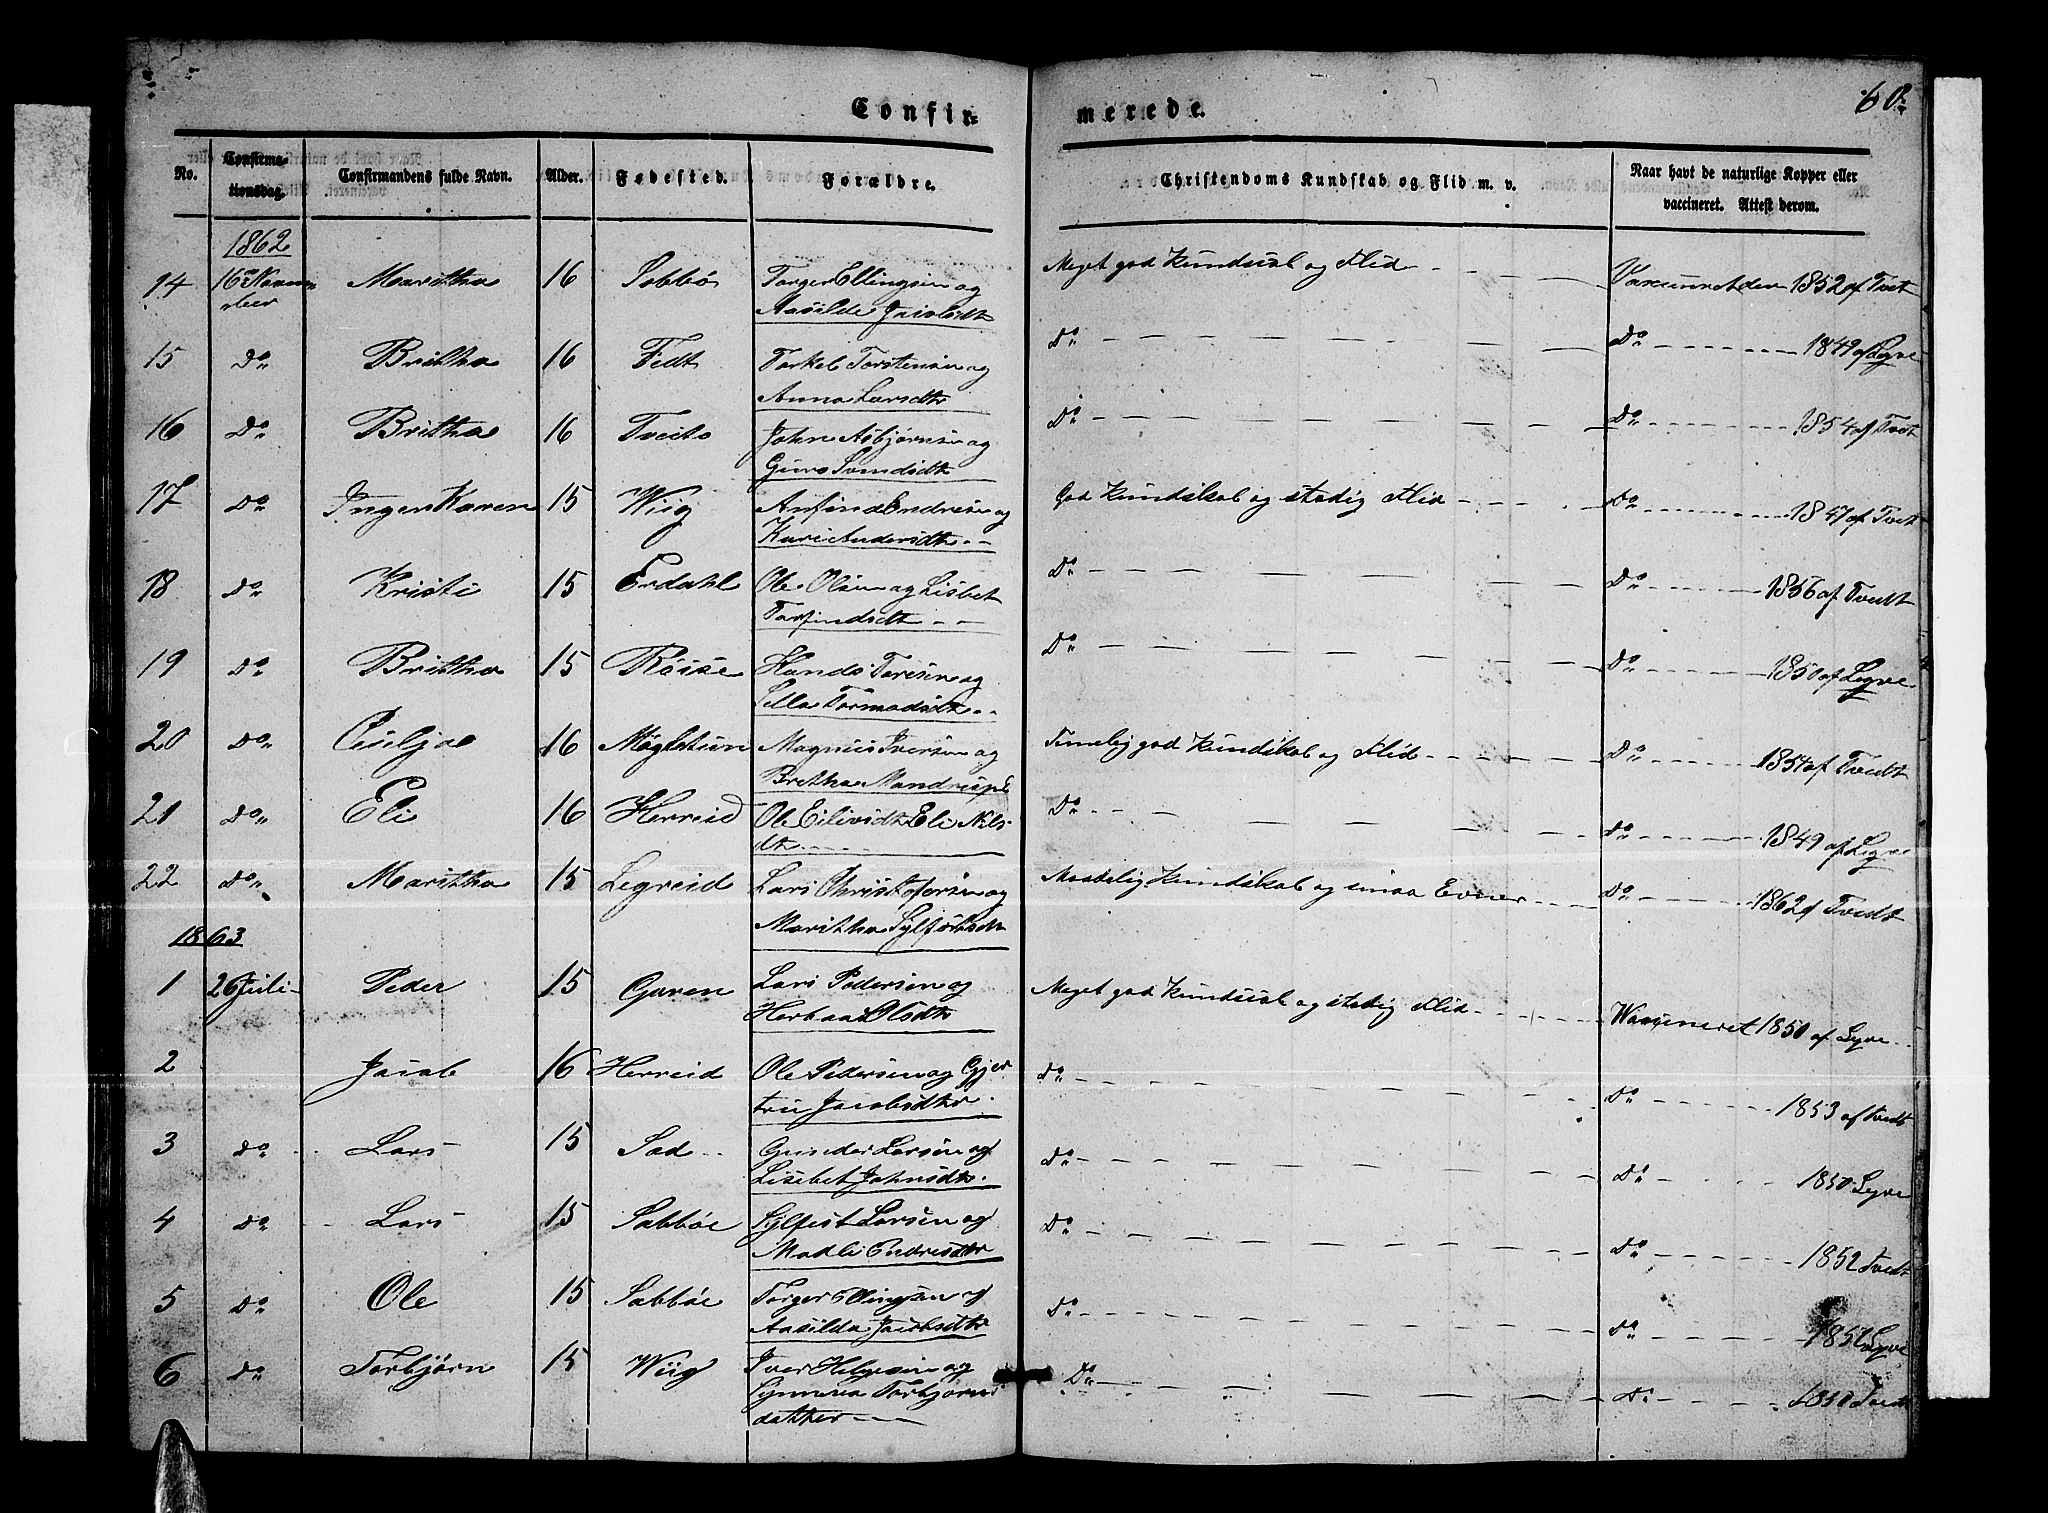 60
Confir=
merede.
No.
Confirma-
tionsdag.
Confirmandens fulde Navn.
Alder.
Fødested.
Forældre.
Christendoms Kundskab og Flid m. v.
Naar havt de naturlige Kopper eller
vaccineret. Attest derom.
1862
14 16 Novem Maritha 16 Sæbbø Torger Ellingsen og Meget god Kundskab og Flid 1852 af Tvet
ber Aasilde Jacobsdt
15 Do Britha 16 Fedt Torkel Torstensen og Do Do 1849 af Legve
Anna Larsdtr
16 Do Britha 16 Tveito John Asbjørnsen og Do Do 1854 af Tvet
Guro Svendsdt
17 Do Inger Karen 15 Wiig Anfind Endresen og God Kundskab og stadig Flid Do 1847 af Tvet
Kari Andersdtr
18 Do Kristi 15 Erdahl Ole Olsen og Lisbet Do Do 1856 af Tvedt
Torfindsdt
19 Do Britha 15 Røise Hands Toresen og Do Do 1850 af Legve
Tormodsdtr
20 Do 16 Magnus Iversen og Temelig god Kundskab og Flid Do 1854 af Tvedt
Britha
21 Do Eli 16 Herreid Ole Eli Nils- Do Do 1849 af Legve
dtr
22 Do Maritha 15 Legreid Lars Christofersen og Maadelig Kundskab og smaa Evner Do 1862 af Tvedt
Maritha Sylfestsdtr
1863
1 26 Juli Peder 15 Garen Lars Pedersen og Meget god Kundskab og stadig Flid 1850 af Lgve
Olsdtr
2 Jacob 16 Herreid Ole Pedersen og Gjer Do Do 1853 af Tvedt
tru Jacobsdtr
3 Do Lars 15 Sæd Gunder Larsen og Do Do 1850 Legve
Lisebet Johnsdtr
4 Do Lars 15 Sæbbøe Sylfest Larsen og Do Do 1852 Tvedt
Madli Endresdtr
5 Do Ole 15 Sæbbøe Torger Ellingsen og Do Do Legve
Aasilda Jacobsdtr
6 Do Torbjørn 15 Wiig Iver Helgesen og Do Do 1850 Tvedt
Synneva Torbjørns
datter